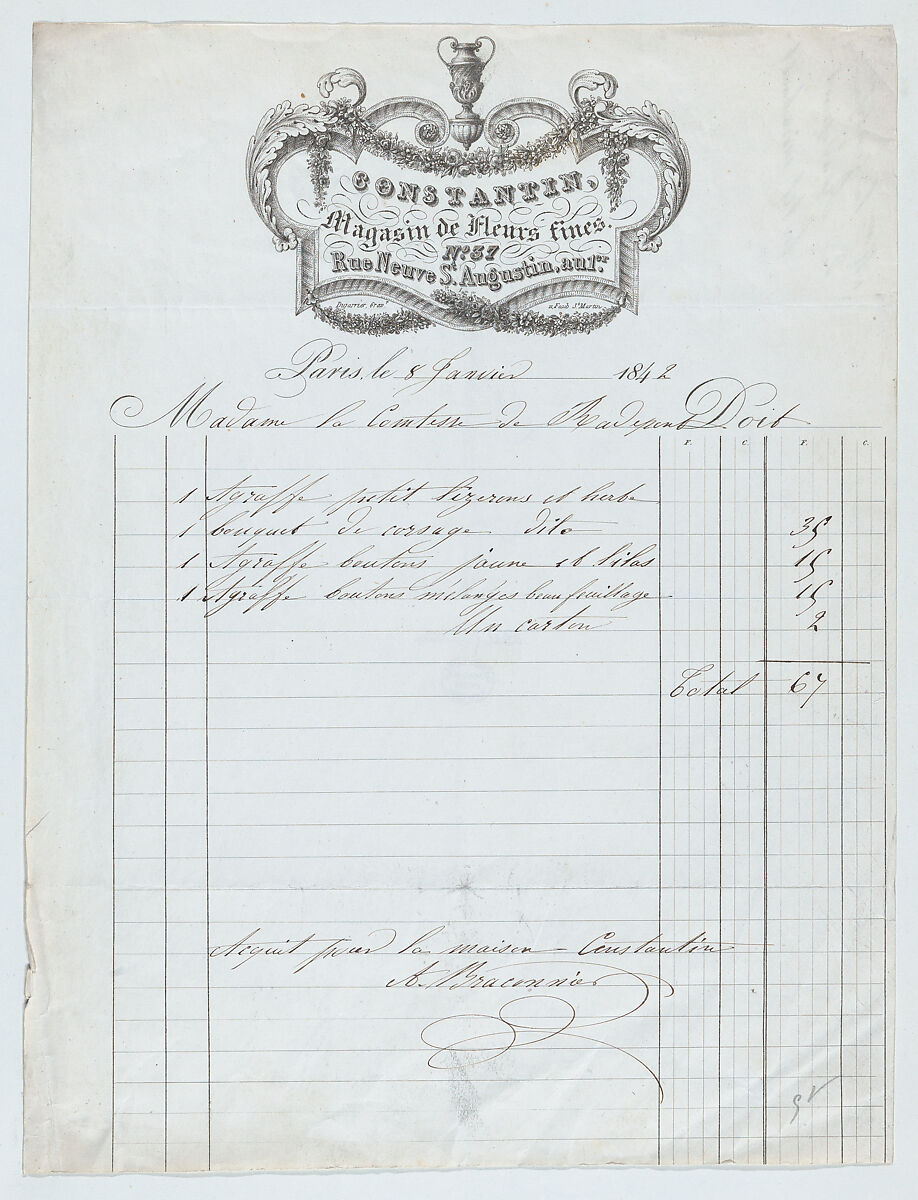 CONSTANTIN,
Magasin de Fleurs fines.
No. 37
Rue Neuve St. Augustin, au 1er.
Paris, le 8 Janvier 1842
Madame la Comtesse de Radepont Doit
F. C. F. C.
1 Agraffe petit lizerons et herbe
1 bouquet de corsage dito 35
1 Agraffe boutons jaune et lilas 15
1 Agraffe boutons mélangés beau feuillage 15
Un carton 2
Total 67
Acquit pour la maison Constantin
A. Braconnier